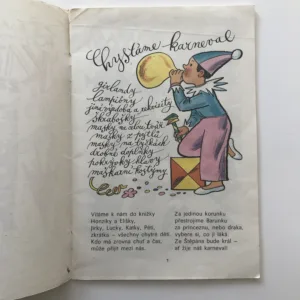 Chystáme karneval
girlandy
lampióny
jiná výzdoba a rekvizity
škrabošky
masky na celou tvář
masky z pytlů
masky na tyčkách
drobné doplňky
pokrývky hlavy
maškarní kostýmy
Vějeme k nám do knížky
Honzíky a Elišky,
Jirky, Lucky, Katky, Péti,
zkrátka – všechny chytré děti.
Kdo má zrovna chuť a čas,
může přijít mezi nás.
Za jedinou korunku
přestrojíme Barunku
za princeznu, nebo draka,
vyberte si, co ji láká.
Ze Štěpána bude král –
ať žije náš karneval!